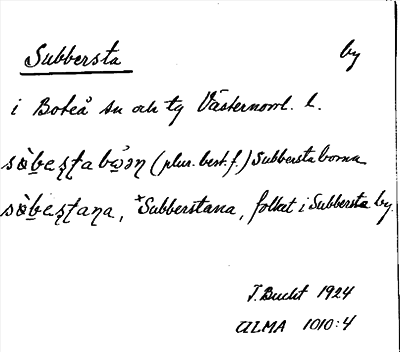 Subbersta by
i Boteå sn och tg Västernorrl. l.
(plur. best. f.) Subberstaborna
*Subberstana, folket i Subbersta by.
J. Bucht 1924
ULMA 1010:4